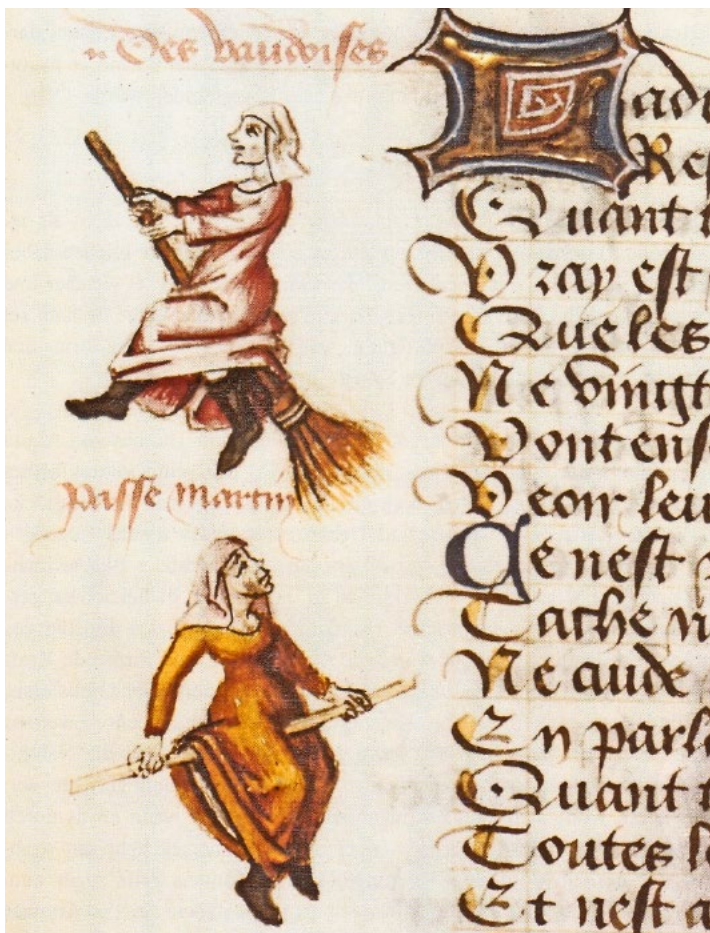 Des vaudoises
passe martin
Quant
Vray est
Que les
Ne vingt
Vont ens
Veoir leu
Ce nest
Tache
Ne cuide
En parl
Quant
Toutes l
Et nest a